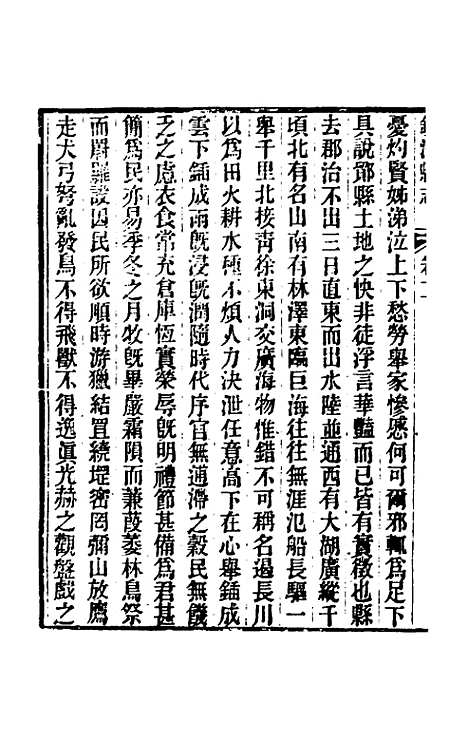 憂灼賢姊涕泣上下愁勞舉家慘慼何可爾邪輒爲足下
具說鄮縣土地之快非徒浮言華豔而已皆有實徵也縣
去郡治不出三日直東而出水陸並通西有大湖廣縱千
頃北有名山南有林澤東臨巨海往往無涯氾船長驅一
舉千里北接靑徐東洞交廣海物惟錯不可稱名過長川
以爲田火耕水種不煩人力決泄任意高下在心舉鍤成
雲下鍤成雨旣浸旣潤隨時代序官無逋滯之穀民無饑
乏之慮衣食常充倉庫恆實榮辱旣明禮節甚備爲君甚
簡爲民亦易季冬之月牧旣畢嚴霜隕而蒹葭萎林鳥祭
而罻羅設因民所欲順時游獵結罝繞堽密罔彌山放鷹
走犬弓弩亂發鳥不得飛獸不得逸眞光赫之觀盤戲之